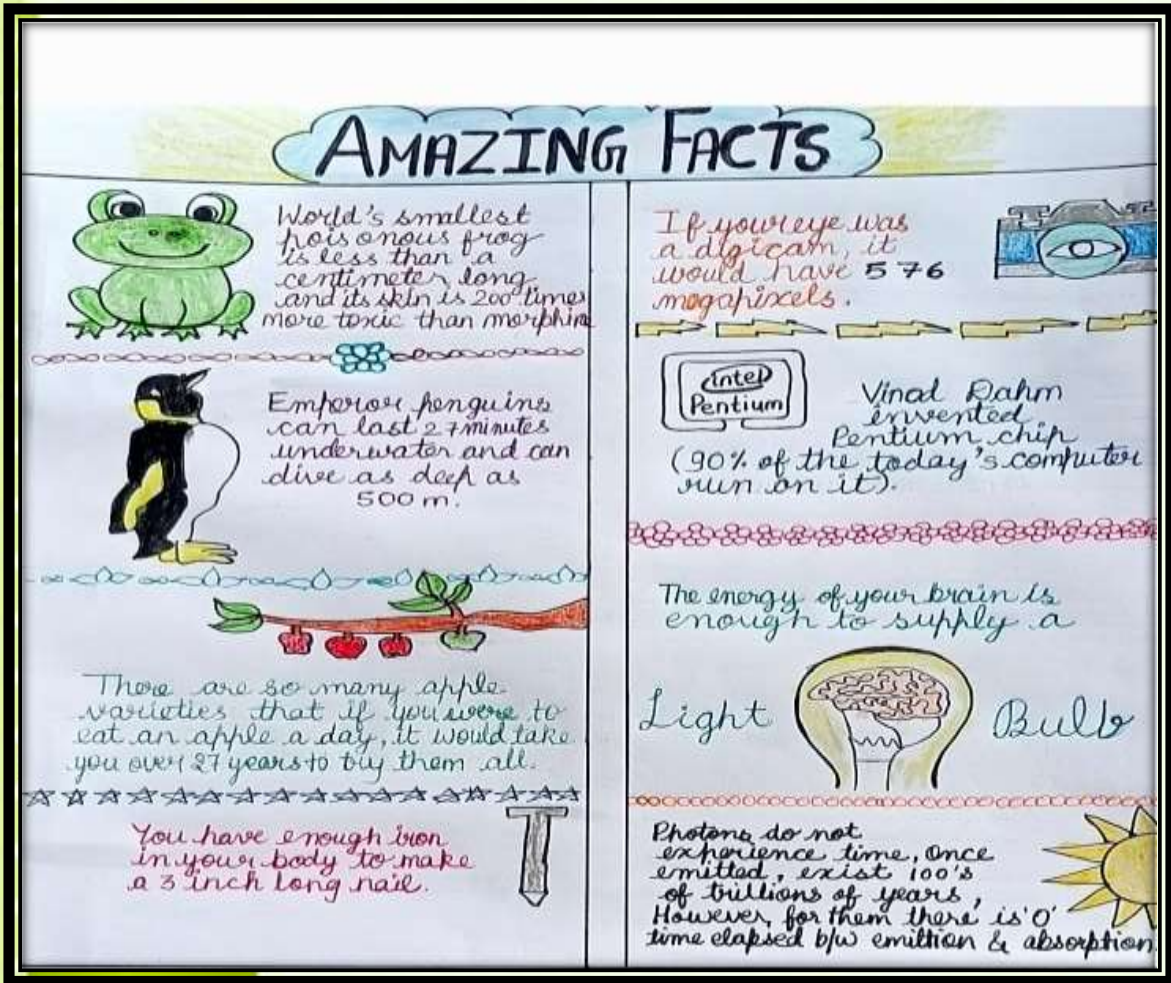 AMAZING FACTS
World's smallest
poisonous frog
is less than a
centimeter long
and its skin is 200 times
more toxic than morphine
Emperor penguins
can last 27 minutes
underwater and can
dive as deep as
500 m.
There are so many apple
varieties that if you were to
eat an apple a day, it would take
you over 27 years to try them all.
You have enough iron
in your body to make
a 3 inch long nail.
If your eye was
a digicam, it
would have 576
megapixels.
intel
Pentium
Vinod Dahm
invented
Pentium chip
(90% of the today's computer
run on it).
The energy of your brain is
enough to supply a
Light Bulb
Photons do not
experience time, once
emitted, exist 100's
of trillions of years,
However, for them there is '0'
time elapsed b/w emiltion & absorption